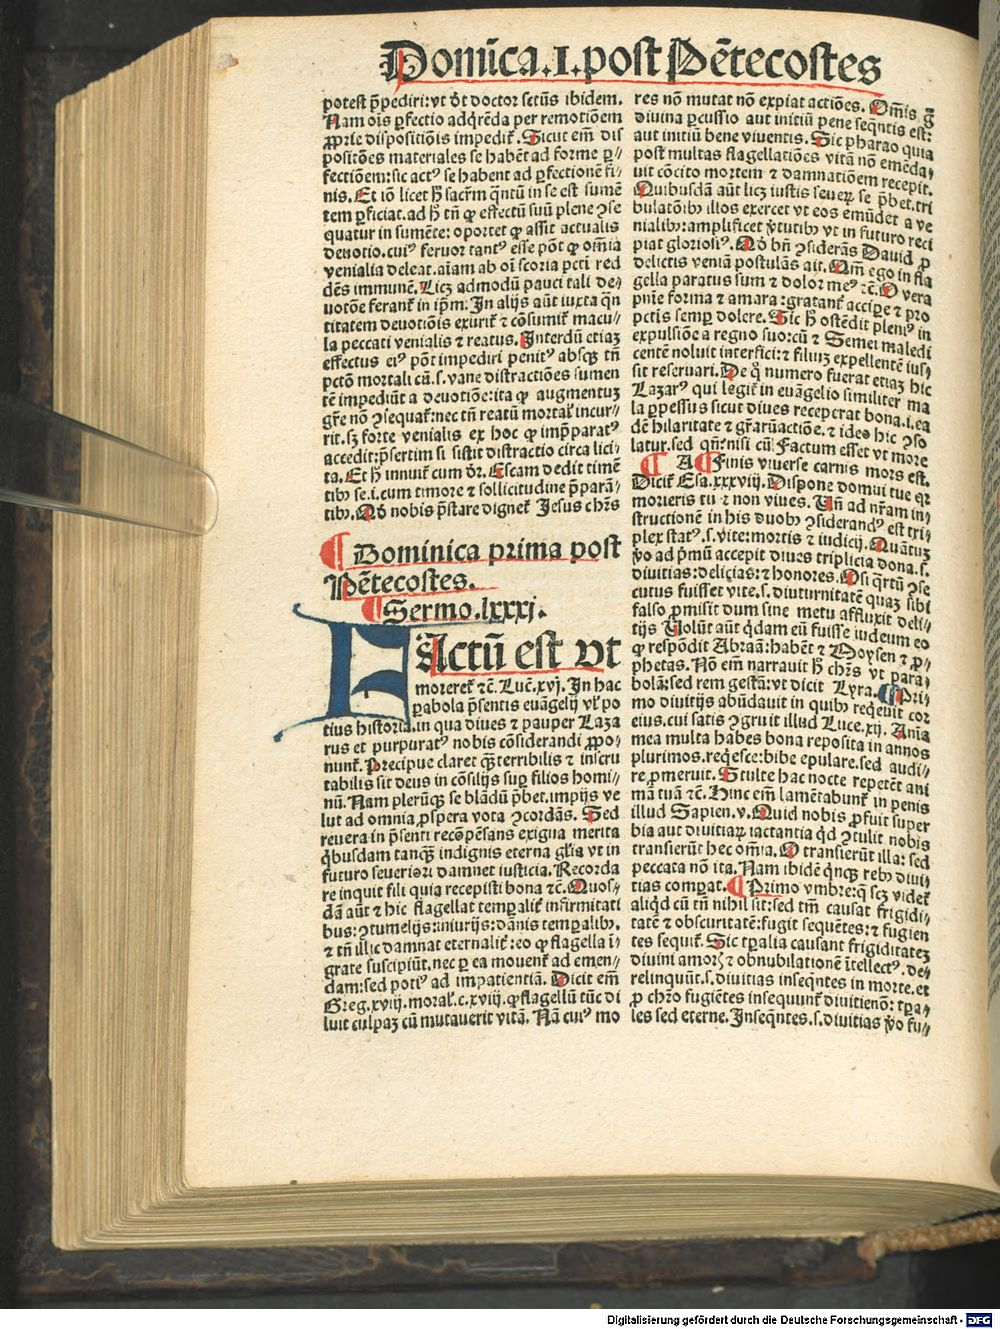 Domīca.I.post Pētecostes
potest p̄pediri:vt dr̄ doctor setus ibidem.
Nam oīs ꝑfectio adqrēda per remotiōem
ꝓprie dispositiōis impedit̃. Sicut em̄ dis
positōes materiales se habēt ad forme ꝑ//
fectiōem:sic actꝰ se habent ad ꝑfectionē fi/
nis. Et iō licet h̄ sacr̄m q̄ntū in se est sumē
tem ꝑficiat. ad h̄ tn̄ ꝙ effectū suū plene ꝯse
quatur in sumēte: oportet ꝙ assit actualis
deuotio. cuiꝰ feruor tantꝰ esse pōt ꝙ om̄ia
venialia deleat. aīam ab oī scoria pctī red
dēs immunē. Licꝫ admodū pauci tali de/
uotōe ferant̃ in ip̄m. In alijs aūt iuxta q̄n
titatem deuotiōis exurit̃ ⁊ cōsumit̃ macu/
la peccati venialis ⁊ reatus. Interdū etiaꝫ
effectus eiꝰ pōt impediri penitꝰ absqꝫ tn̄
pctō mortali cū.s.vane distractiōes sumen
tē impediūt a deuotiōe:ita ꝙ augmentuꝫ
gr̄e nō ꝯsequat̃:nec tn̄ reatū mortal̓ incur//
rit.sꝫ forte venialis ex hoc ꝙ imp̄paratꝰ
accedit:p̄sertim si sistit distractio circa lici/
ta. Et h̄ innuit̃ cum dr̄. Escam dedit timē
tibꝰ se.i.cum timore ⁊ sollicitudine p̄parā/
tibꝰ. Qd̄ nobis p̄stare dignet̃ Jesus chr̄s
¶ Dominica prima post
Pētecostes.
¶ Sermo.lxxxj.
FActū est vt
moreret̃ ⁊c̄. Luc̄.xvj. In hac
ꝑabola p̄sentis euāgelij vl̓ po
tius historia.in qua diues ⁊ pauper Laza
rus et purpuratꝰ nobis cōsiderandi ꝓpo/
nunt̃. Precipue claret qꝫ terribilis ⁊ inscru
tabilis sit deus in cōsilijs suꝑ filios homi//
nū. Nam plerūqꝫ se blādū p̄bet.impijs ve
lut ad omnia ꝓspera vota ꝯcordās. Sed
reuera in p̄senti recōpēsans exigua merita
q̄busdam tanqꝫ indignis eterna gl̓ia vt in
futuro seueriori damnet iusticia. Recorda
re inquit fili quia recepisti bona ⁊c̄. Quos/
dā aūt ⁊ hic flagellat temꝑalit̃ infirmitati
bus:ꝯtumelijs:iniurijs:dānis temꝑalibꝰ.
⁊ tn̄ illic damnat eternalit̃:eo ꝙ flagella ī/
grate suscipiūt.nec ꝑ ea mouent̃ ad emen/
dam:sed potiꝰ ad impatientiā. Dicit em̄
Greg.xviij.moral̓.c.xviij.ꝙ flagellū tūc di
luit culpaꝫ cū mutauerit vitā. Nā cuiꝰ mo
res nō mutat nō expiat actiōes. Om̄is ḡ
diuina ꝑcussio aut initiū pene seq̄ntis est:
aut initiū bene viuentis. Sic pharao quia
post multas flagellatiōes vitā nō emēda/
uit cōcito mortem ⁊ damnatiōem recepit.
Quibusdā aūt licꝫ iustis seueꝝ se p̄bet.tri
bulatōibꝰ illos exercet vt eos emūdet a ve
nialibꝰ:amplificet v̓tutibꝰ vt in futuro reci
piat gloriosiꝰ. Qd̄ bn̄ ꝯsiderās Dauid ꝓ
delictis veniā postulās ait. Qm̄ ego in fla
gella paratus sum ⁊ dolor meꝰ ⁊c̄. O vera
pnīe forma ⁊ amara:gratant̃ acciꝑe ⁊ pro
pctis semꝑ dolere. Sic h̄ ostēdit pleniꝰ in
expulsiōe a regno suo:cū ⁊ Semei maledi
centē noluit interfici:⁊ filiuꝫ expellentē ius/
sit reseruari. De q̄ numero fuerat etiaꝫ hic
Lazarꝰ qui legit̃ in euāgelio similiter ma
la ꝑpessus sicut diues receperat bona.i.ea
dē hilaritate ⁊ gr̄aruactiōe.⁊ ideo hic ꝯso
latur.sed qn̄:nisi cū Factum esset vt more
¶ A ¶ Finis viuerse carnis mors est.
Dicit̃ Esa.xxxviij. Dispone domui tue qꝛ
morieris tu ⁊ non viues. Vn̄ ad nr̄am in/
structionē in his duobꝰ ꝯsiderandꝰ est tri/
plex statꝰ.s.vite:mortis ⁊ iudicij. Quātuꝫ
v̓o ad p̄mū accepit diues triplicia dona.s.
diuitias:delicias:⁊ honores. Qsi q̄rtū ꝯse
cutus fuisset vite.s.diuturnitatē quaꝫ sibi
falso ꝓmisit dum sine metu affluxit deli/
tijs Volūt aūt q̄dam eū fuisse iudeum eo
ꝙ respōdit Abraā:habēt ⁊ Moysen ⁊ ꝓ/
phetas. Nō em̄ narrauit h̄ chr̄s vt para/
bolā:sed rem gestā:vt dicit Lyra. ¶ Pri/
mo diuitijs abūdauit in quibꝰ reqeuit cor
eius.cui satis ꝯgruit illud Luce.xij. Aīa
mea multa habes bona reposita in annos
plurimos.reqesce:bibe epulare.sed audi/
re ꝓmeruit. Stulte hac nocte repetēt ani
mā tuā ⁊c̄. Hinc em̄ lamētabunt̃ in penis
illud Sapien.v. Quid nobis ꝓfuit super
bia aut diuitiaꝝ iactantia q̄d ꝯtulit nobis
transierūt hec om̄ia. O transierūt illa: sed
peccata nō ita. Nam ibidē q̄ncqꝫ rebꝰ diui/
tias comꝑat. ¶ Primo vmbre:q̄ scꝫ videt̃
aliq̄d cū tn̄ nihil sit:sed tm̄ causat frigidi/
tatē ⁊ obscuritatē:fugit sequētes:⁊ fugien
tes sequit̃. Sic tꝑalia causant frigiditateꝫ
diuini amorꝫ ⁊ obnubilationē ītellectꝰ.de/
relinquūt.s.diuitias inseq̄ntes in morte.et
ꝓ chr̄o fugiētes insequunt̃ diuitienō: tꝑa/
les sed eterne. Inseq̄ntes.s.diuitias v̓o fu//
Digitalisierung gefördert durch die Deutsche Forschungsgemeinschaft - DFG